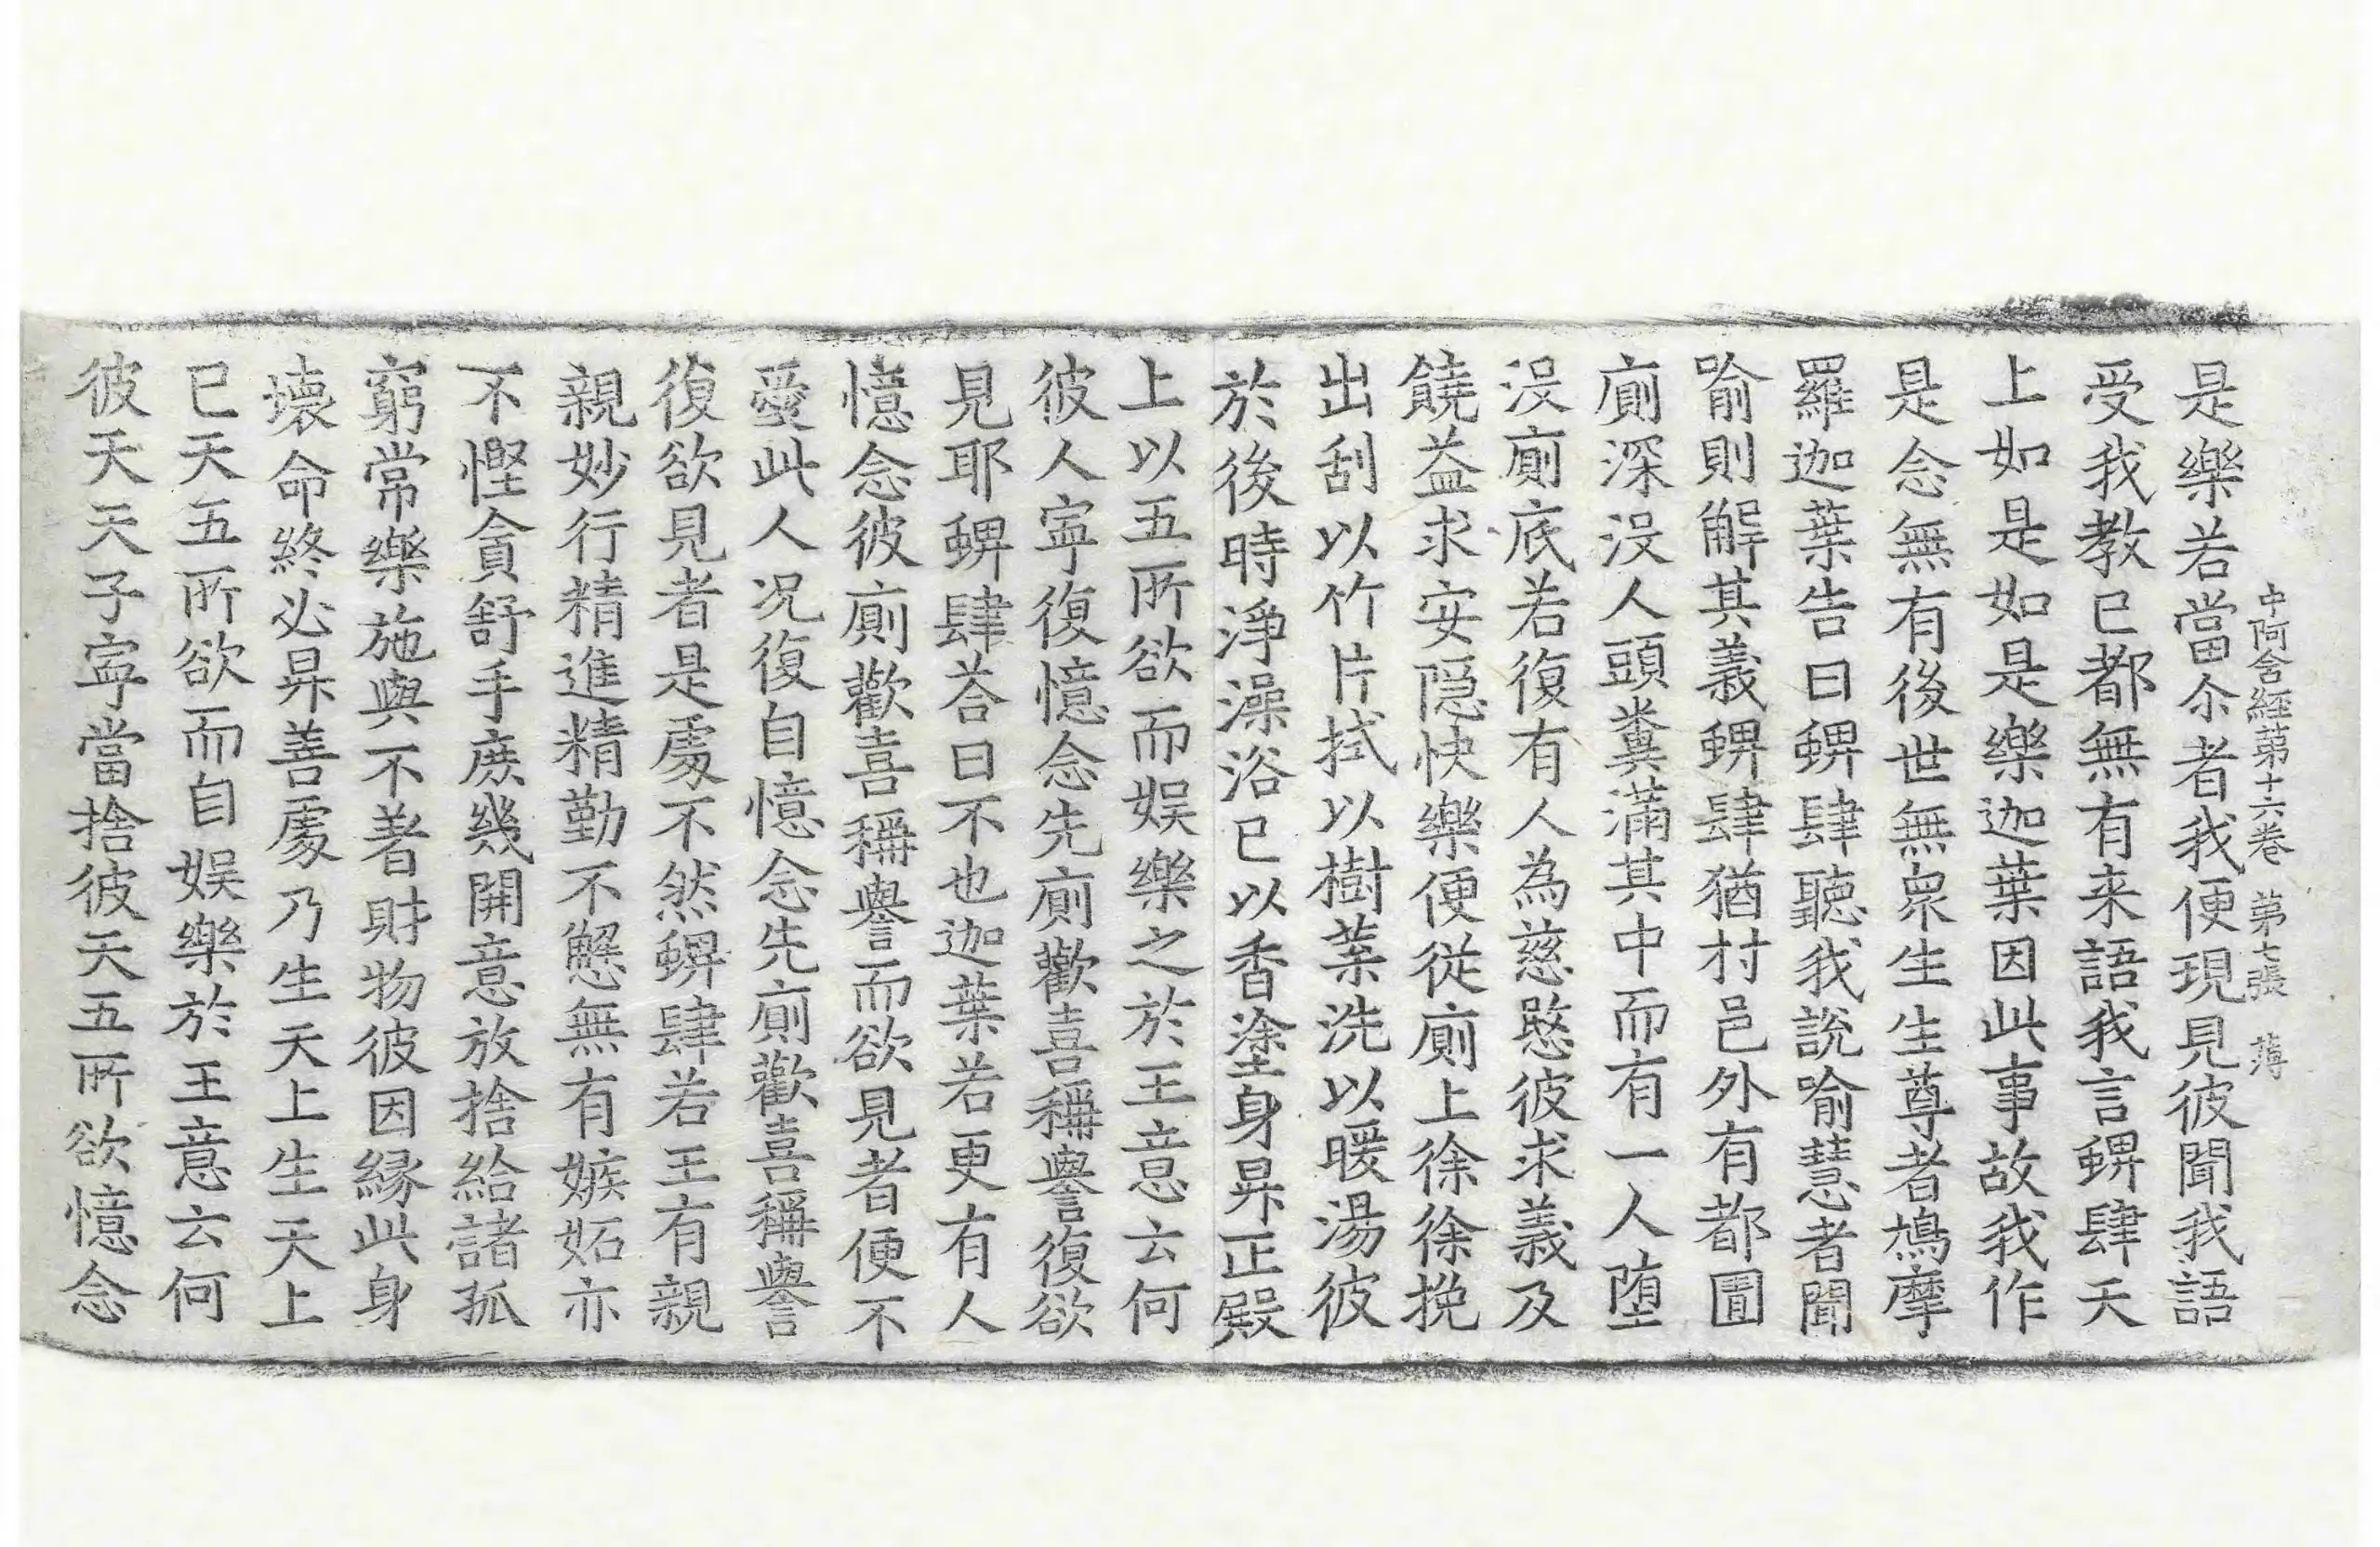 中阿含經第十六卷 第七張 薄
是樂若當尒者我便現見彼聞我語
受我教已都無有来語我言蜱肆天
上如是如是樂迦葉因此事故我作
是念無有後世無衆生生尊者鳩摩
羅迦葉告曰蜱肆聽我說喻慧者聞
喻則解其義蜱肆猶村邑外有都圊
廁深没人頭糞滿其中而有一人堕
没廁底若復有人為慈愍彼求義及
饒益求安隠快樂便從廁上徐徐挽
出刮以竹片拭以樹葉洗以暖湯彼
於後時淨澡浴已以香塗身昇正殿
上以五所欲而娱樂之於王意云何
彼人寧復憶念先廁歡喜稱譽復欲
見耶蜱肆荅曰不也迦葉若更有人
憶念彼廁歡喜稱譽而欲見者便不
愛此人况復自憶念先廁歡喜稱譽
復欲見者是處不然蜱肆若王有親
親妙行精進精勤不懈無有嫉妬亦
不慳貪舒手庶幾開意放捨給諸孤
窮常樂施與不著財物彼因縁此身
壊命終必昇善處乃生天上生天上
已天五所欲而自娱樂於王意云何
彼天天子寧當捨彼天五所欲憶念